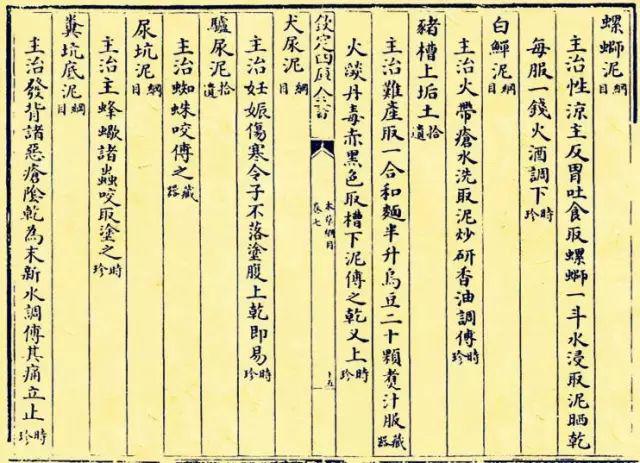 螺螄泥綱目
主治性涼主反胃吐食取螺螄一斗水浸取泥晒乾
每服一錢火酒調下時珍
白鱓泥綱目
主治火帶瘡水洗取泥炒研香油調傅時珍
豬槽上垢土拾遺
主治難產服一合和麵半升烏豆二十顆煑汁服藏器
火𦦨丹毒赤黑色取槽下泥傅之乾又上時珍
欽定四庫全書
本草綱目
卷七
十五
犬尿泥綱目
主治妊娠傷寒令子不落塗腹上乾即易時珍
驢尿泥拾遺
主治蜘蛛咬傅之藏器
尿坑泥綱目
主治主蜂蠍諸蟲咬取塗之時珍
糞坑底泥綱目
主治發背諸惡瘡陰乾為末新水調傅其痛立止時珍